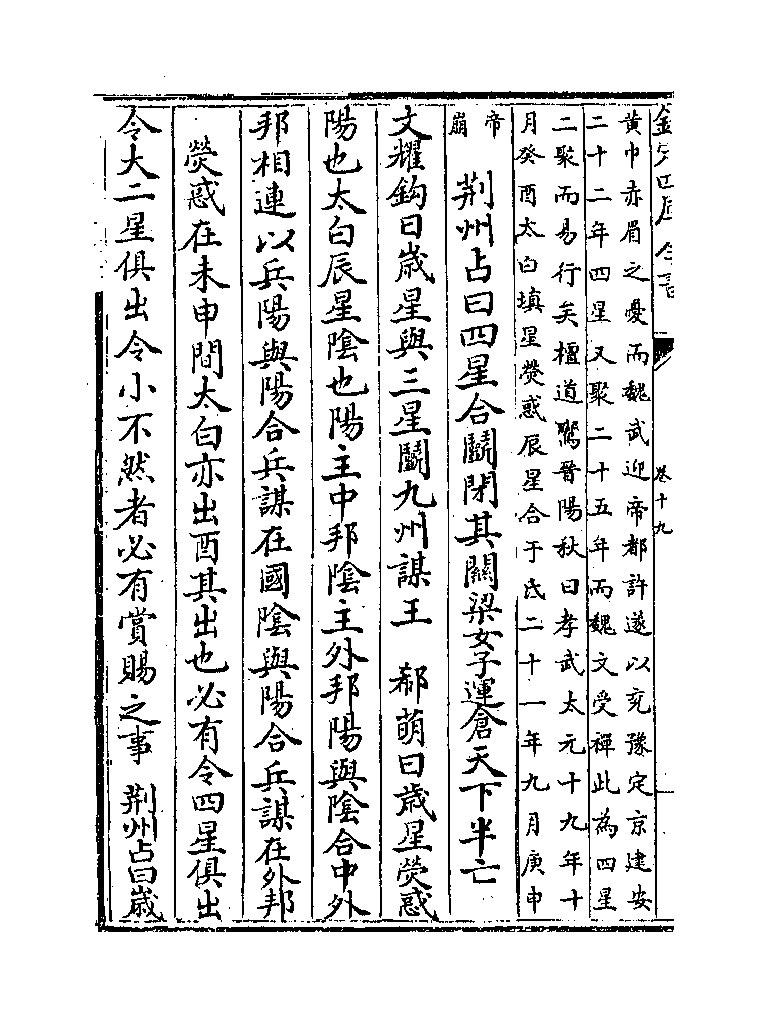 欽定四庫全書
卷十九
黃巾赤眉之憂而魏武迎帝都許遂以兗豫定京建安
二十二年四星又聚二十五年而魏文受禪此為四星
二聚而易行矣檀道鸞晉陽秋曰孝武太元十九年十
月癸酉太白填星熒惑辰星合于氐二十一年九月庚申
帝崩　荆州占曰四星合鬭閉其關梁女子運倉天下半亡
文耀鈎曰歲星與三星鬭九州謀王　郗萌曰歲星熒惑
陽也太白辰星陰也陽主中邦陰主外邦陽與陰合中外
邦相連以兵陽與陽合兵謀在國陰與陽合兵謀在外邦
熒惑在未申間太白亦出酉其出也必有令四星俱出
令大二星俱出令小不然者必有賞賜之事　荆州占曰歲